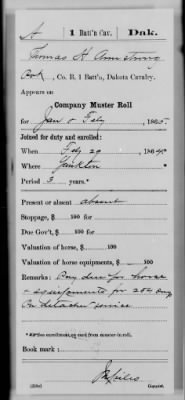 A | 1 Batt'n Cav. | Dak.
Thomas H Armstrong
, Co. B, 1 Batt'n, Dakota Cavalry.
Appears on
Company Muster Roll
for Jan & Feby, 1865.
Joined for duty and enrolled:
When Feby 20, 186
Where Yankton
Period 3 years.*
Present or absent absent
Stoppage, $ 100 for
Due Gov't, $ 100 for
Valuation of horse, $ 100
Valuation of horse equipments, $ 100
Remarks: Pay due for horse
& equipments for 20 day
On detached service
*See the enrollment on card from muster-in roll.
Book mark:
(358c) Copyist.